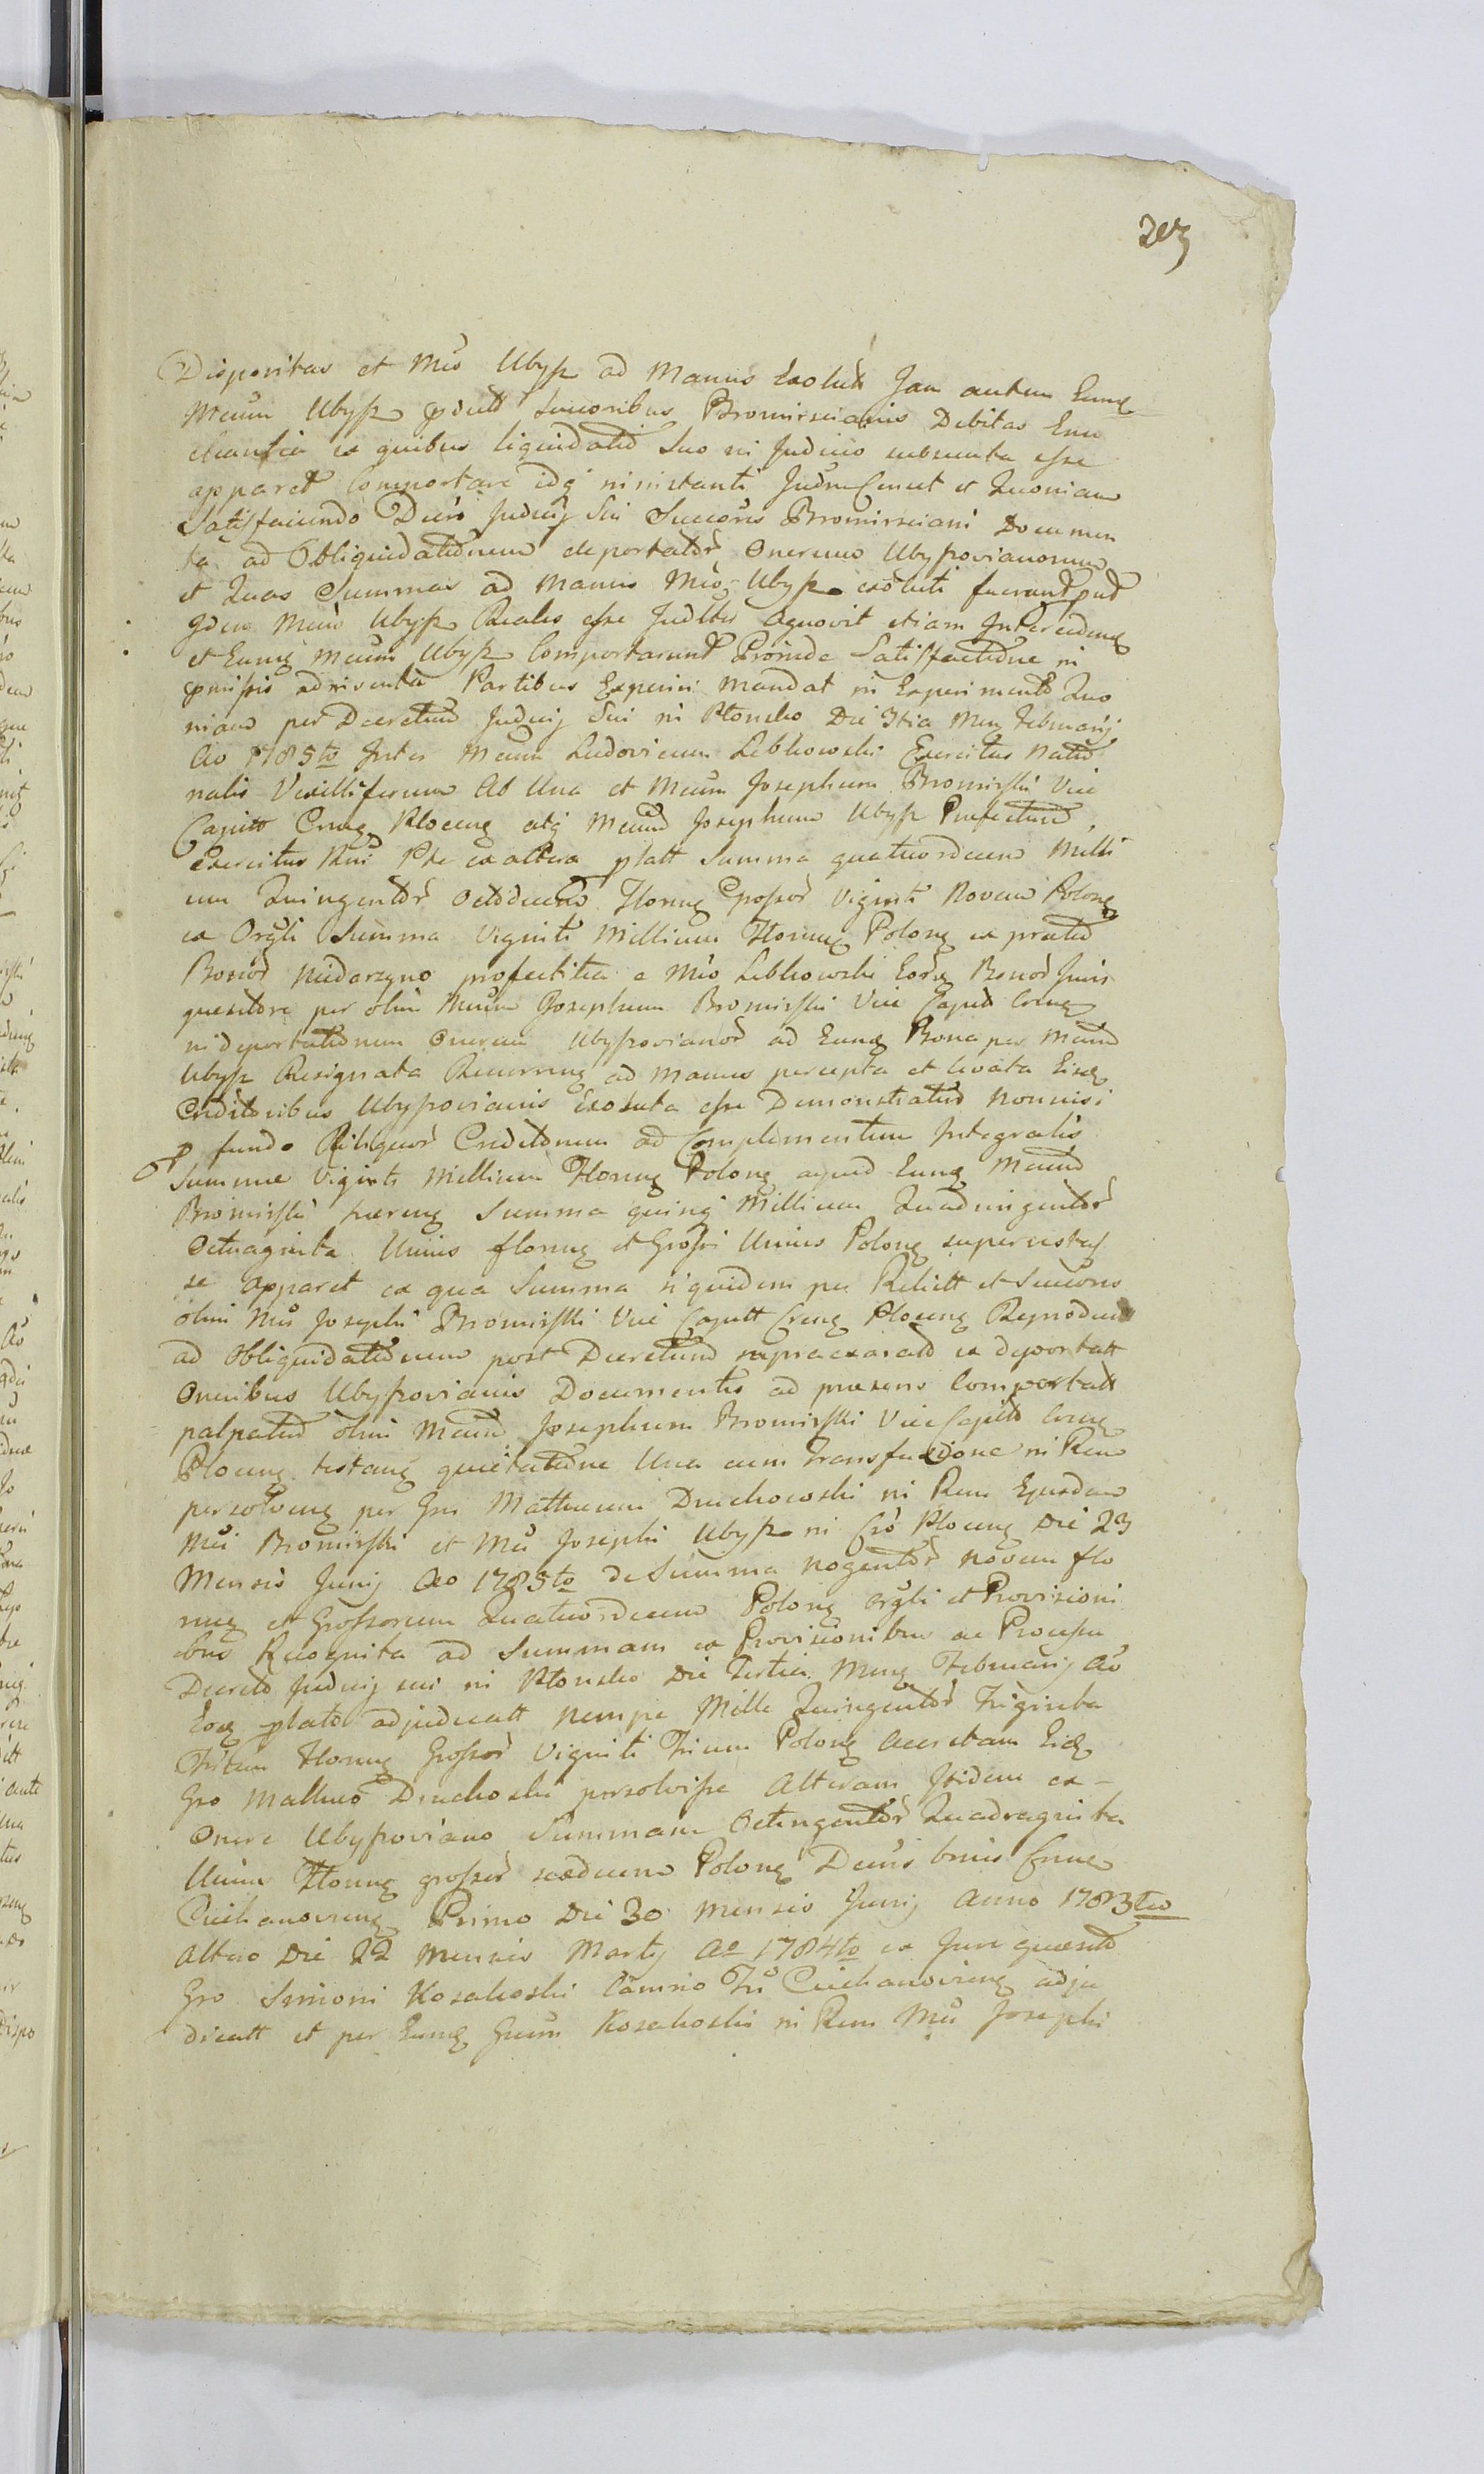 203
Disparitas et Mco Ubysz ad Manus Exolut Jam autem Eumq
Mcum Ubysz Successoribus Bromirscianis Debitas Enu
cleantia ex quibus liquidatio Suo in Judicio
apparet Comportare idq ninistanti Judm Censet et Quoniam
Satisfaciendo Dcro Judicij Sui Succores Bromirsciani Documen
ta ad Obliquidationem deportator Onerum Ubyszovianorum
et Quas Summas ad Manus Mco Ubysz exoluti fuerant
Mcus Ubysz Reales esse Judltr Agnovit etiam
et Eumq Mcum Ubysz Comportarunt Proinde Satisfactione in
pmissis Partibus Experiri Mandat in Experimento Quo
niam per Decretum Judicij Sui in Plonsko Die 3tia Mens Februarij
Ao 1785to Inter Mcum Ludovicum Lebkowski Exercitus Natio
nalis Vexilliferum Ab Una et Mcum Josephum Bromirski Vice
Capitt Crnsq Plocenq atq Mcum Josephum Ubysz Prefectum
Exercitus Pte ex altera platt Summa quatuordecim Milli
um Quingentor Octodecim Florenq Grossor Viginti Novem Polonq
ex Orgli Summa Viginti Millium Florenq Polonq ex pretio
Bonor Niedarzyno profectitia a Mco Lebkowski Eorq Bonor Juris
quesitore per olim Mcum Josephum Bromirski Vice Capit Crnsq
in deportationem Onerum Ubyszovianor ad Eumq Bona per Mcum
Ubysz Resignata Recurrenq ad Manus percepta et levata Eisq
Creditoribus Ubyszovianis Exoluta esse Demonstratur Nonnisi
p fundo Reliquor Creditorum ad Complementum Integralis
Summe Viginti Millium Florenq Polonq apud Eumq Mcum
Bromirski Summa quinq Millium Quadringentor
Octuaginta Unius florenq et Grossi Unius Polonq superestas
se Apparet ex qua Summa siquidem per Relictt et Succores
olim Mci Josephi Bromirski Vice Capitt Crnsq Plocenq Reproduct
ad Obliquidationem post Decretum supraexarat ex deportatt
Oneribus Ubyszovianis Documentis ad presens Comportatt
palpatur olim Mcum Josephum Bromirski Vice Capitt Crnsq
Plocenq testanq quietatione Una cum Transfusione in Rem
persolvenq per Gm Mathaeum Druchowski in Rem Ejusdem
Mci Bromirski et Mci Josephi Ubysz in Cro Plocenq Die 23
Mensis Junij Ao 1785to de Summa nogentor novem flo
renq et Grossorum Quatuordecim Polonq orgli et Provisioni
bus Recognita ad Summam ex Provisionibus ac Processu
Decreto Judicij sui in Plonsko Die Tertia Mensq Februarij Ao
Eoq plato adjudicatt nempe Mille Quingentor Triginta
Trium Florenq Grossor Viginti Trium Polonq Accretam Eidq
Gso Matheo Druchoski persolvisse Alteram Itidem ex
Onere Ubyszoviano Summam Octingentor Quadraginta
Unius Florenq grossor sexdecem Polonq Dcris binis Crnsq
Ciechanovienq Primo Die 30 Mensis Junij Anno 1783tio
Altero Die 22 Mensis Martij Ao 1784to ex Jure quesito
Gso Simoni Kosakoski Camrio Tri Ciechanovienq adju
dicatt et per Eumq Gsum Kosakoski in Rem Mci Josephi